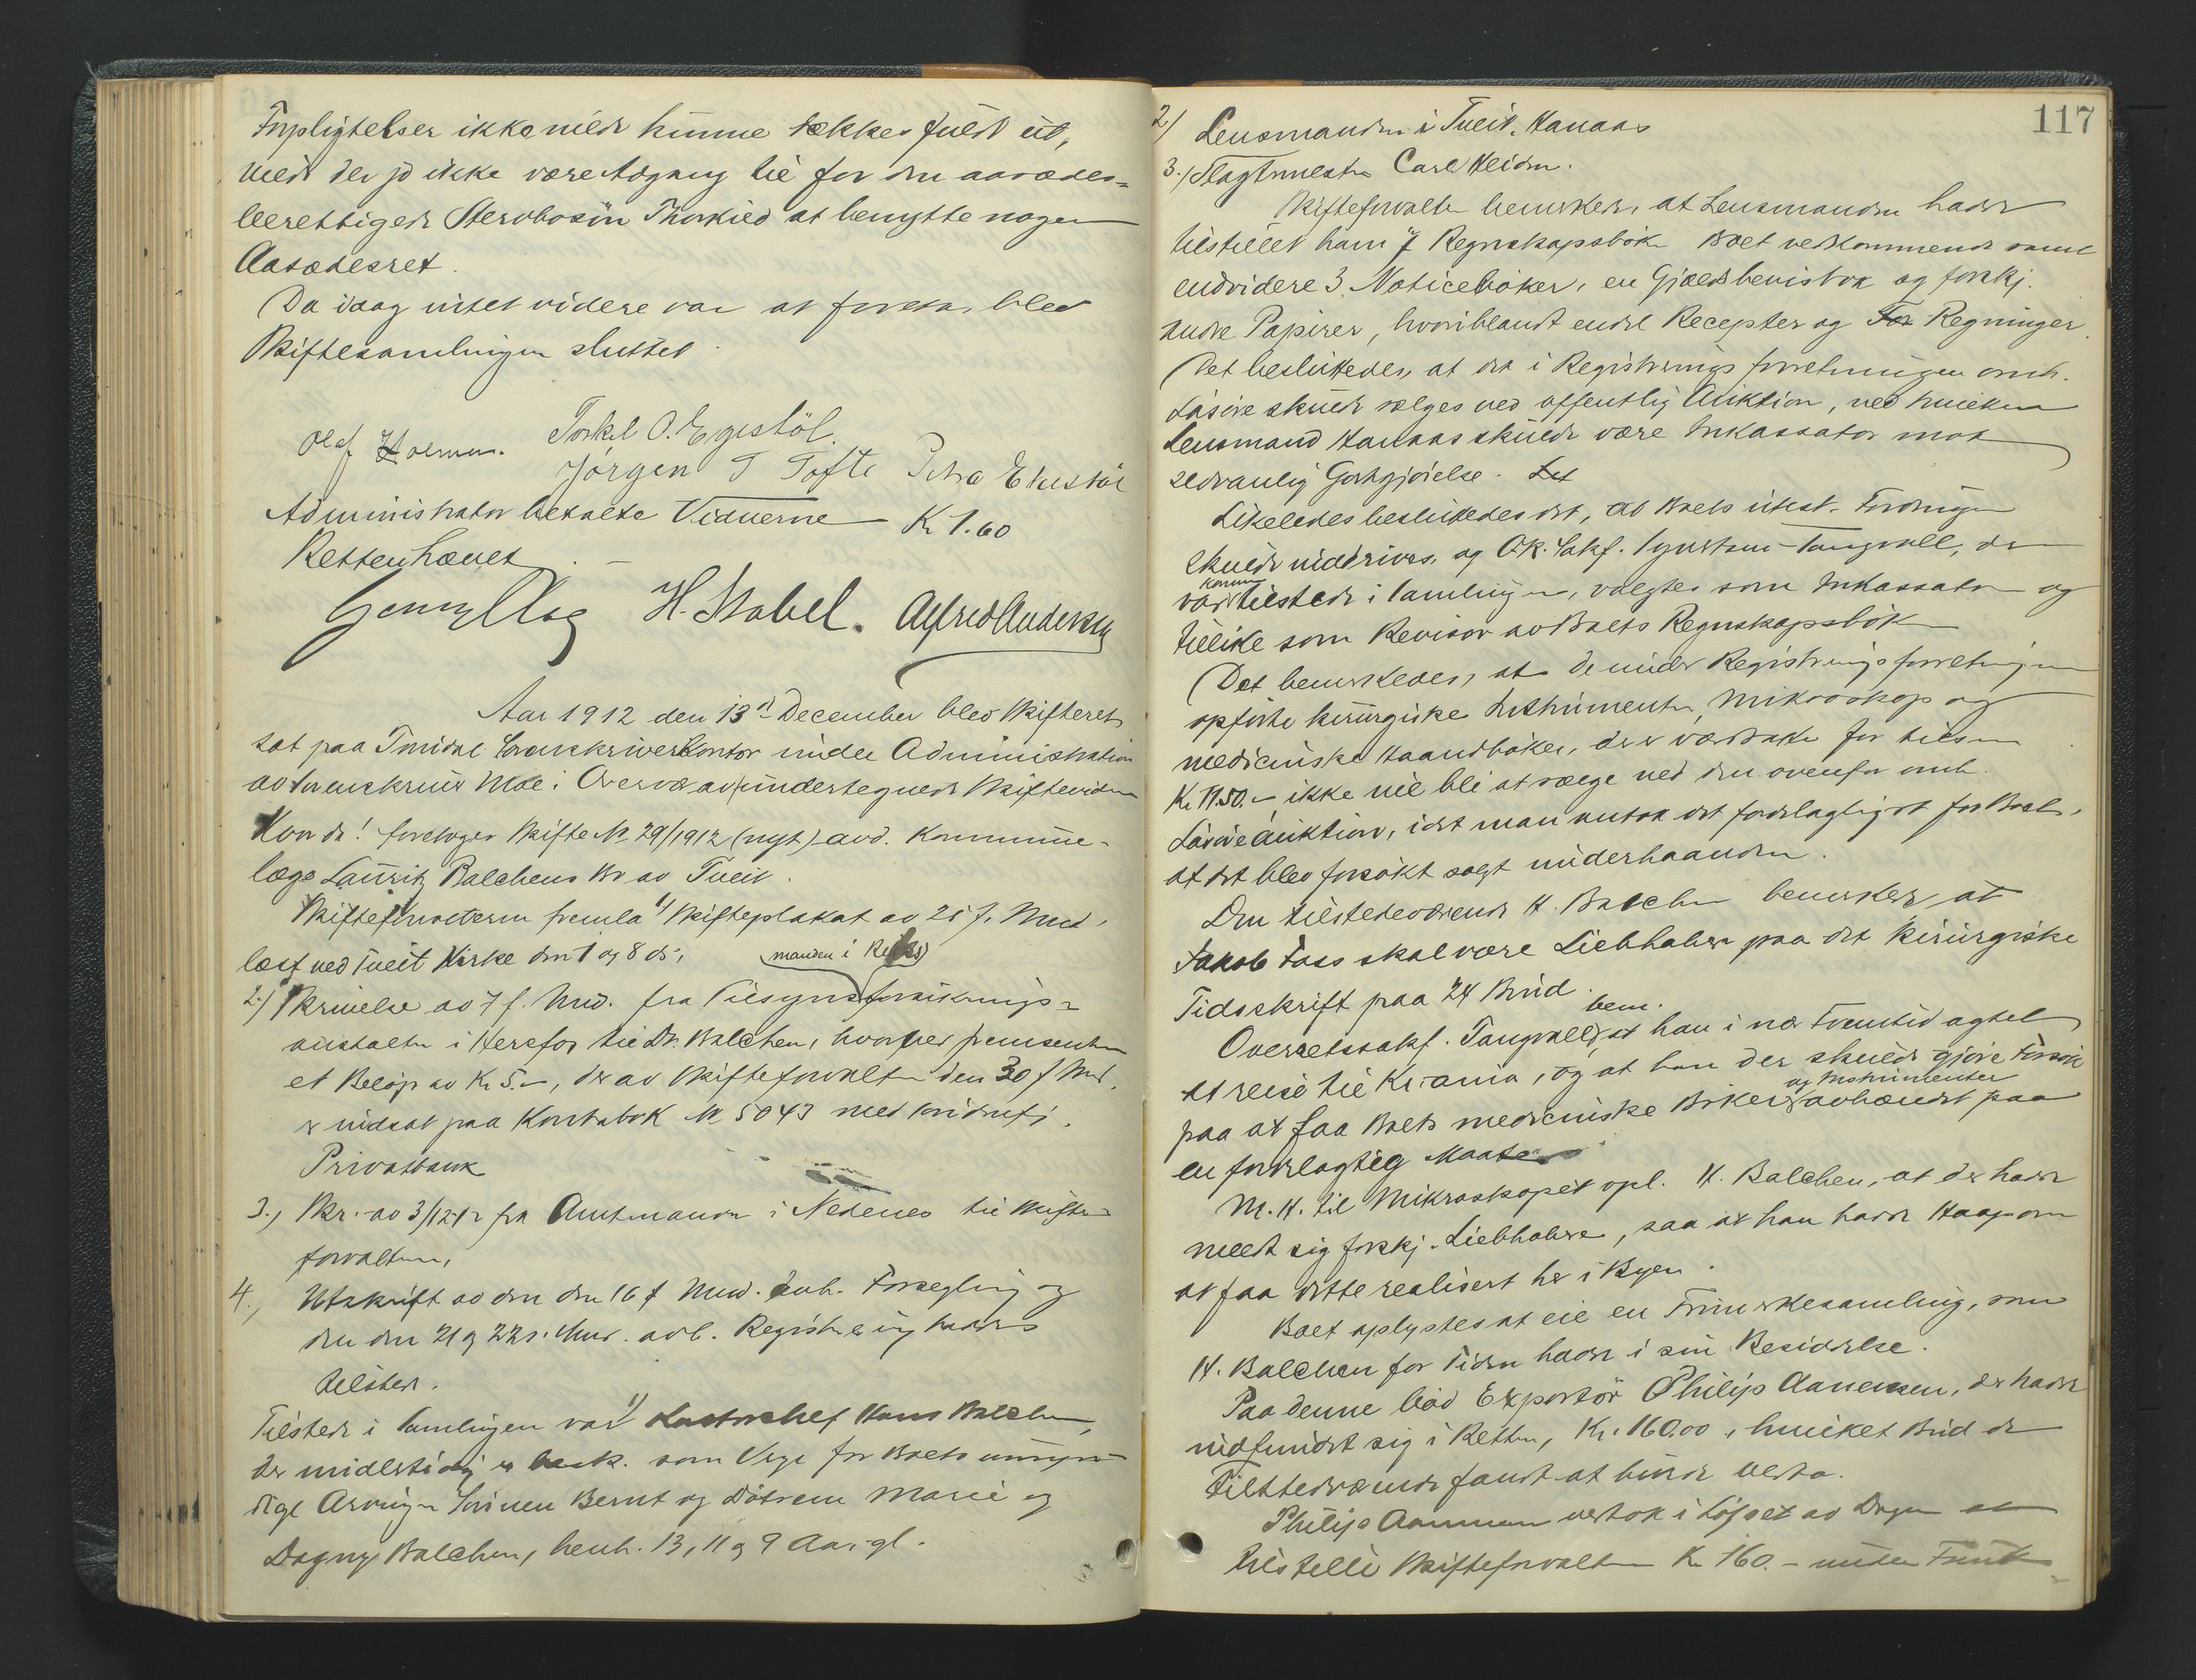 Forpligtelser ikke vilde kunne dækkes fuldt ut,
vilde der jo ikke være Adgang til for den aasædes-
berettigede Stervbosøn Thorkild at benytte nogen
Aasædesret.
Da idag intet videre var at foreta, blev
Skiftesamlingen sluttet.
Olaf Holmen. Torkel O. Egestöl.
Jørgen T Tofte Petra Ekestøl
Administrator betalte Vidnerne Kr 1.60
Retten hævet. –
H. Stabel. Alfred Andersen
Aar 1912 den 13de December blev Skifteret
sat paa Torridal Sorenskriverkontor under Administration
av Sorenskriver Moe i Overvær av undertegnede Skiftevidner
Hvorda! foretoges Skifte No 29/1912 (nyt) avd. Kommune-
læge Lauritz Balchens Bo av Tveit.
Skifteforvalteren fremla 1) Skifteplakat av 25 f. Mnd,
læst ved Tveit Kirke den 1 og 8 ds,
manden i
2.) Skrivelse av 7 f. Mnd. fra Tilsyns forsikrings-
anstalten i Herefos til Dr. Balchen, hvorved fremsendtes
et Beløp av Kr 5.–, der av Skifteforvalteren den 30 f Mnd.
er indsat paa Kontrabok No 5043 med Kristiansfj.
Privatbank
3., Skr. av 3/12-12 fra Amtmanden i Nedenes til Skifte-
forvalteren,
4., Utskrift av den den 16 f Mnd. avh. Forsegling og
den den 21 og 22 s. Mnd. avh. Registrering hersteds
tilsted.
Tilstede i Samlingen var 1) Kontorchef Hans Balchen,
der midlertidig er besk. som Verge for Boets umyn-
dige Arvinger Sønnen Bernt og Døtrene Marie og
Dagny Balchen, henh. 13, 11 og 9 Aar gl.
117
2) Lensmanden i Tveit, Hanaas
3.) Slagtmester Carl Heiden.
Skifteforvalteren bemerkede, at Lensmanden hadde
tilstillet ham 7 Regnskapsbøker Boet vedkommende samt
endvidere 3 Noticebøker, en Gjældsbevisbok og forskj.
andre Papirer, hvoriblandt endel Recepter og For Regninger.
Det besluttedes, at det i Registreringsforretningen omh.
Løsøre skulde sælges ved offentlig Auktion, ved hvilken
Lensmand Hanaas skulde være Inkassator mot
sedvanlig Godtgjørelse. Det
Likeledes besluttedes det, at Boets utest. Fordringer
skulde inddrives, og O.R. Sakf. Tangvall, der
kommen
var tilstede i Samlingen, valgtes som Inkassator og
tillike som Revisor av Boets Regnskapsbøker
Det bemerkedes, at de under Registreringsforretningen
opførte kirurgiske Instrumenter, Mikroskop og
medicinske Haandbøker, der er værdsatte for tilsm
Kr 11.50.– ikke vil bli at sælge ved den ovenfor omh.
Løsøreauktion, idet man antok det fordelagtigst for Boet,
at det blev forsøkt solgt underhaanden.
Den tilstedeværende H. Balchen bemerkede, at
Jakob Foss skal være Liebhaber paa det kirurgiske
Tidsskrift paa 24 Bind.
bem.
Overretssakf. Tangvall, at han i nær Fremtid agtet
at reise til Kr.ania, og at han der skulde gjøre Forsøk
og Instrumenter
paa at faa Boets medicinske Bøker avhændet paa
en fordelagtig Maate.
M. H. til Mikroskopet opl. H. Balchen, at der hadde
meldt sig forskj. Liebhabere, saa at han hadde Haap om
at faa dette realisert her i Byen.
Boet oplystes at eie en Frimerkesamling, som
H. Balchen for Tiden hadde i sin Besiddelse.
Paa denne bød Exportør Philip Aanensen, der hadde
indfundet sig i Retten, Kr. 160.00, hvilket Bud de
Tilstedeværende fandt at burde vedta.
Philip Aanensen vedtok i Løpet av Dagen at
tilstille Skifteforvalteren Kr 160.– under